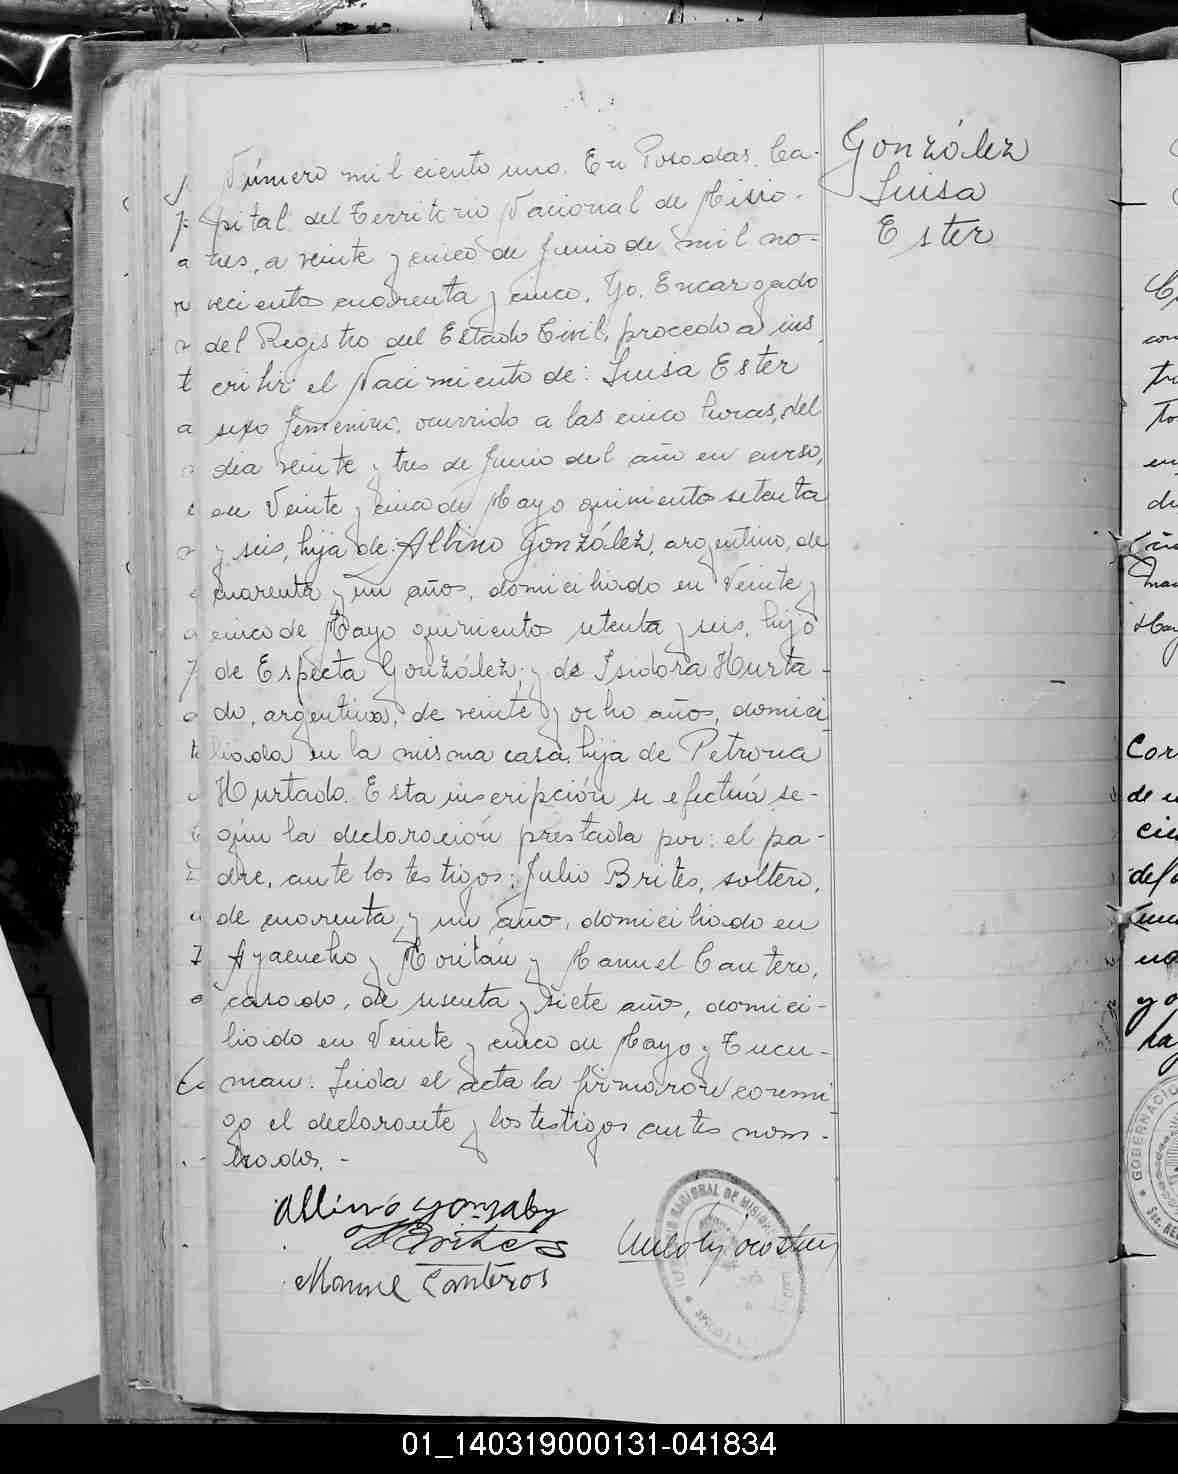 González
Luisa
Ester
Número mil ciento uno. En Posadas, Ca-
pital del Territorio Nacional de Misio-
nes, a veinte y cinco de Junio de mil no-
vecientos cuarenta y cinco. Yo, Encargado
del Registro del Estado Civil, procedo a ins
cribir el Nacimiento de: Luisa Ester
sexo femenino, ocurrido a las cinco horas, del
día veinte y tres de Junio del año en curso,
en Veinte y cinco de Mayo quinientos setenta
y seis, hija de: Albino González, argentino, de
cuarenta y un años, domiciliado en Veinte y
cinco de Mayo quinientos setenta y seis, hijo
de Especta González; y de Isidora Hurta-
do, argentina, de veinte y ocho años, domici
liada en la misma casa, hija de Petrona
Hurtado. Esta inscripción se efectúa se-
gún la declaración prestada por: el pa-
dre, ante los testigos: Julio Brites, soltero,
de cuarenta y un año, domiciliado en
Ayacucho y Roritán y Manuel Cantero,
casado, de sesenta y siete años, domici-
liado en Veinte y cinco de Mayo y Tucu-
man. Leida el acta la firmaron conmi
go el declarante y los testigos antes nom-
brados. -
Albino Gonzalez
J Brites
Manuel Canteros
NACIONAL DE MISIONES
GOBERNACIO
Sec. RE
01_140319000131-041834